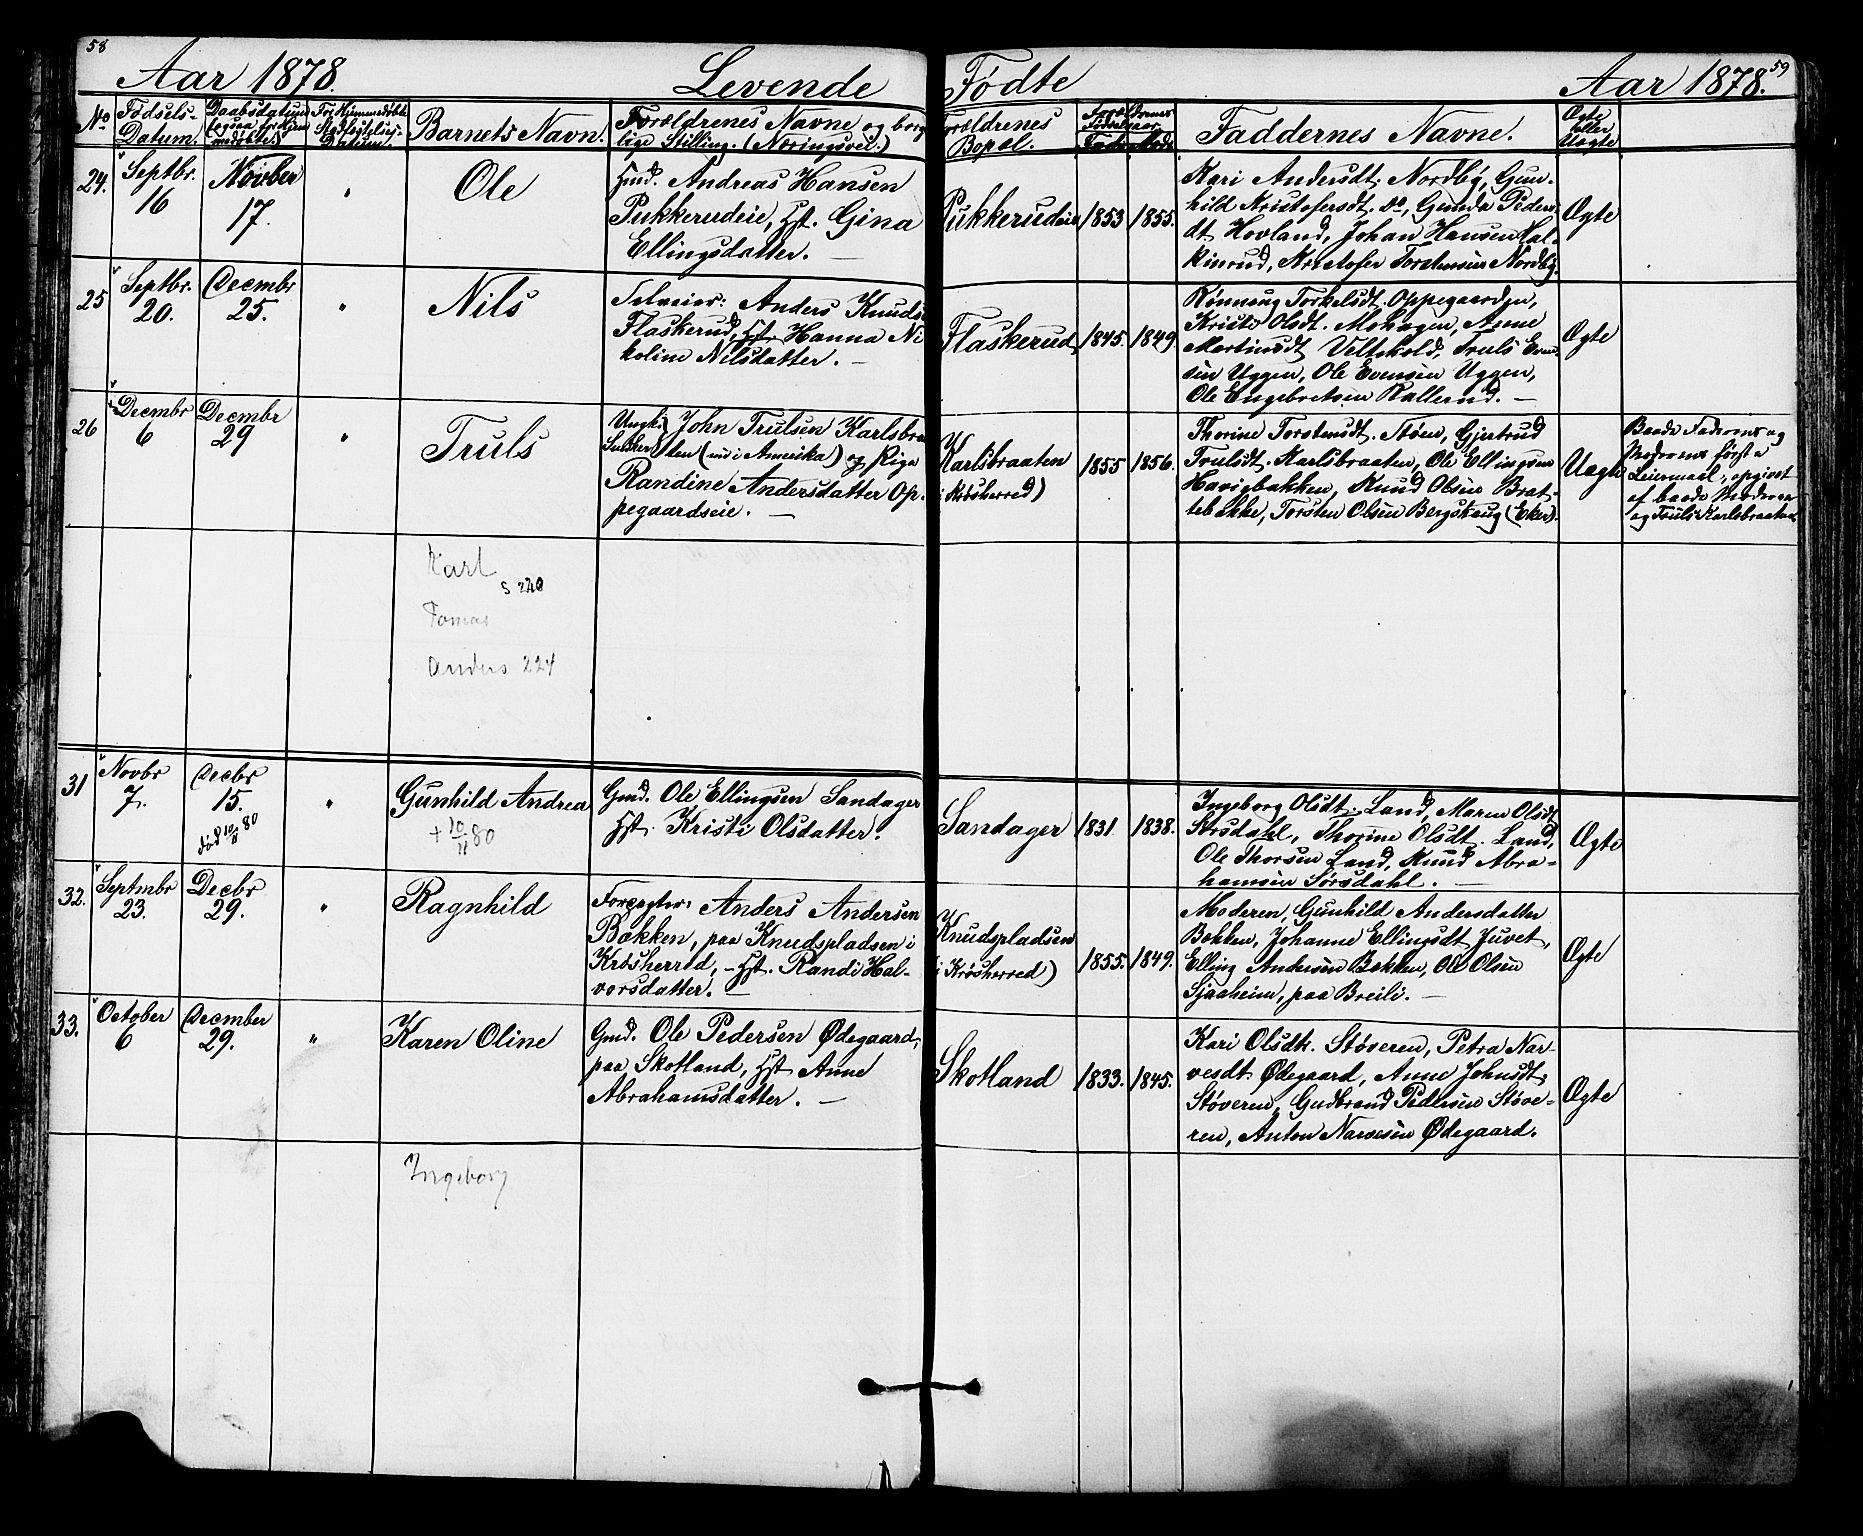 58
Aar 1878.
Levende
Fødte
Aar 1878.
59
No
Fødsels-
Datum.
Daabsdatum
Datum.
Barnets Navn.
Forældrenes Navne og borg
lige Stilling. (Næringsvei.)
Forældrenes
Bopæl.
Fødselsaar
Faddernes Navne.
Ægte
eller
Uægte
24.
Septbr.
16
Novber
17.
"
Ole
Gmd. Andreas Hansen
Pukkerudeie, Hst. Gina
Ellingsdatter. —
Pukkerudeie
1853
1855.
Kari Andersdt. Nordby, Gun-
hild Kristofersdt. do, Gunda Peders
dt Hovland, Johan Hansen Kal-
kinrud, Kristofer Torstensen Nordby.
Ægte
25
Septbr.
20.
Decmbr
25.
"
Nils
Selveier: Anders Knuds
Flaskerud, Hst. Hanna Ni
koline Nilsdatter. —
Flaskerud
1845.
1849.
Rønnaug Torkelsdt. Oppegaarden,
Kristi Olsdt. Mohagen, Anne
Martinsdt Veltekold, Truls Even
sen Uggen, Ole Evensen Uggen,
Ole Engebretsen Kallerud. —
Ægte
26
Decmbr
6
Decmbr
29
"
Truls
Ungk. John Trulsen Karlsbra
ten (nu i Amerika) og Pige
Randine Andersdatter Op-
pegaardseie. —
Karlsbraaten
(i Krøsherred)
1855
1856.
Thorine Torstensdt. Støen, Gjertrud
Trulsdt. Karlsbraaten, Ole Ellingsen
Haviebakken, Knud Olsen Brat-
tebække, Torsten Olsen Bergskaug (Eker).
Uægte
Baade Faderens og
Moderens første
Leiermaal, opgivet
af baade Moderen
og Truls Karlsbraaten
Karl
S 220
Tomas
Anders 224
31
Novbr
7.
Decbr
15.
død 10/11 80
"
Gunhild Andrea
+ 10/11 80
Gmd. Ole Ellingsen Sandager
Hst. Kristi Olsdatter.
Sandager
1831
1838.
Ingeborg Olsdt. Land, Maren Olsdt
Sørsdahl, Thorine Olsdt. Land,
Ole Thorsen Land, Knud Abra-
hamsen Sørsdahl. —
Ægte
32.
Septmbr
23.
Decbr
29.
"
Ragnhild
Forpagter: Anders Andersen
Bækken, paa Knudspladsen i
Krøsherred, – Hst. Randi Hal-
vorsdatter. —
Knudspladsen
(i Krøsherred)
1855.
1849.
Moderen, Gunhild Andersdatter
Bækken, Johanne Ellingsdt Juvet,
Elling Andersen Bækken, Ole Olsen
Sjaaheim, paa Breili. —
Ægte
33.
October
6
December
29.
"
Karen Oline
Gmd. Ole Pedersen Ødegaard,
paa Skotland, Hst Anne
Abrahamsdatter. —
Skotland
1833.
1845.
Kari Olsdtr. Støveren, Petra Nar-
vesdt. Ødegaard, Anne Johnsdt.
Støveren, Gudbrand Pedersen Støve-
ren, Anton Narvesen Ødegaard.
Ægte
Ingeborg